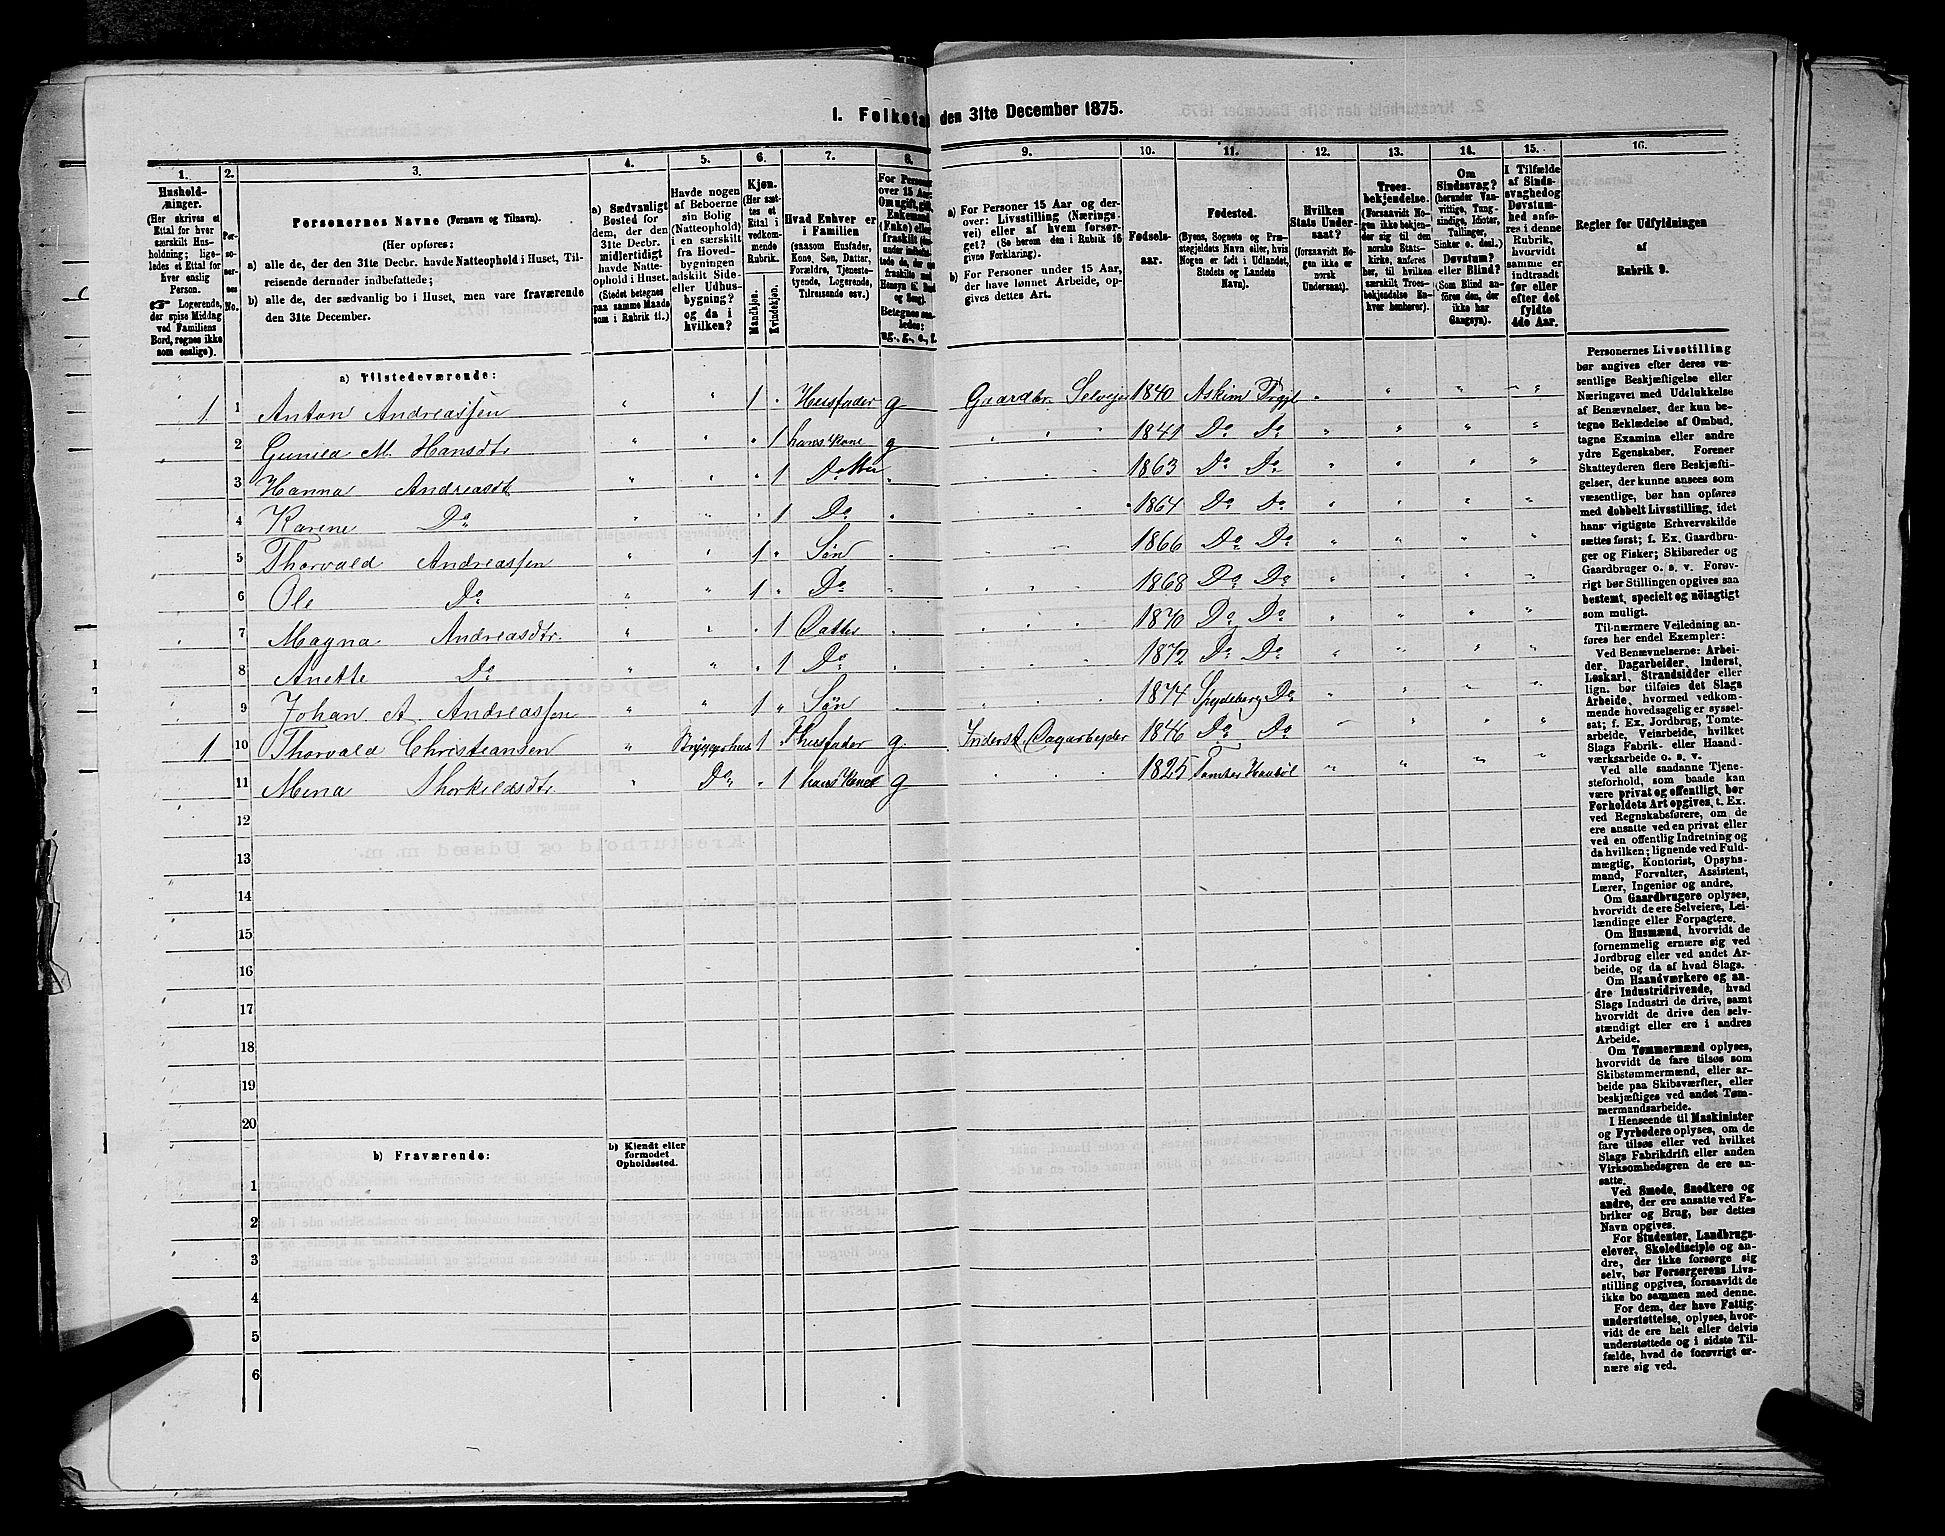 1. Folketal den 31te December 1875.
1. 2. 3. 4. 5. 6. 7. 8. 9. 10. 11. 12. 13. 14. 15. 16.
Hushold-
ninger.
(Her skrives et
Ettal for hver
særskilt Hus-
holdning; lige-
ledes et Ettal for
hver enslig
Person.
☞ Logerende,
der spise Middag
ved Familiens
Bord, regnes ikke
som enslige).
Per-
so-
ner-
nes
No.
Personernes Navne (Fornavn og Tilnavn).
(Her opføres:
a) alle de, der den 31te Decbr. havde Natteophold i Huset, Til-
reisende derunder indbefattede;
b) alle de, der sædvanlig bo i Huset, men vare fraværende
den 31te December.
a) Sædvanligt
Bosted for
dem, der den
31te Decbr.
midlertidigt
havde Natte-
ophold i Huset.
(Stedet betegnes
paa samme Maade
som i Rubrik 11.)
Havde nogen
af Beboerne
sin Bolig
(Natteophold)
i en særskilt
fra Hoved-
bygningen
adskilt Side-
eller Udhus-
bygning?
og da i
hvilken?
Kjøn.
(Her sæt-
tes et
Ettal i
vedkom-
mende
Rubrik.
Mandkjøn.
Kvindekjøn.
Hvad Enhver er
i Familien
(saasom Husfader,
Kone, Søn, Datter,
Forældre, Tjeneste-
tyende, Logerende,
Tilreisende osv.)
For Personer
over 15 Aar:
a) For Personer 15 Aar og der-
over: Livsstilling (Nærings-
vei) eller af hvem forsør-
get? (Se herom den i Rubrik 16
givne Forklaring).
b) For Personer under 15 Aar,
der have lønnet Arbeide, op-
gives dettes Art.
Fødsels-
aar.
Fødested.
(Byens, Sognets og Præ-
stegjeldets Navn eller, hvis
Nogen er født i Udlandet,
Stedets og Landets
Navn).
Hvilken
Stats Under-
saat?
(forsaavidt No-
gen ikke er
norsk
Undersaat).
Troes-
bekjendelse.
(Forsaavidt No-
gen ikke bekjen-
der sig til den
norske Stats-
kirke, anføres
her, til hvilken
særskilt Troes-
bekjendelse En-
hver henhører).
Om
Sindssvag?
(herunder Van-
vittige, Tung-
sindige, Idioter,
Tullinger,
Sinker o. desl.)
Døvstum?
eller Blind?
(Som Blind an-
føres den, der
ikke har
Gangsyn).
I Tilfælde
af Sinds-
svaghed og
Døvstum-
hed anfø-
res i denne
Rubrik,
hvorvidt
samme er
indtraadt
før eller
efter det
fyldte
4de Aar.
Regler for Udfyldningen
af
Rubrik 9.
a) Tilstedeværende:
1 1 Anton Andreassen " " 1 " Husfader g Gaardbr. Selveier 1840 Askim Prgjl " " " " "
2 Gunild M. Hansdtr " " " 1 hans Kone g " " " 1841 Do Do " " " " "
3 Hanna Andreasdt " " " 1 Datter " 1863 Do Do " " " "
4 Karene Do " " " 1 Do " 1864 Do Do " " " "
5 Thorvald Andreassen " " 1 " Søn " 1866 Do Do " " " "
6 Ole Do " " 1 " Do " 1868 Do Do " " " "
7 Magna Andreasdtr. " " " 1 Datter " 1870 Do Do " " " "
8 Anette Do " " " 1 Do " 1872 Do Do " " " "
9 Johan A. Andreassen " " 1 " Søn " 1874 Spydeberg Do " " " "
1 10 Thorvald Christiansen " Bryggerhus 1 " Husfader g. Inderst. Dagarbejder 1846 Do Do " " " "
11 Mena Thorkildsdtr. " Do " 1 hans Kone g " " 1825 " " " "
12
13
14
15
16
17
18
19
20
b) Fraværende:
b) Kjendt eller
formodet
Opholdssted.
1
2
3
4
5
6
Personernes Livsstilling
bør angives efter deres væ-
sentlige Beskjæftigelse eller
Næringsvei med Udelukkelse
af Benævnelser, der kun be-
tegne Beklædelse af Ombud,
tagne Examina eller andre
ydre Egenskaber. Forener
Skatteyderen flere Beskjæfti-
gelser, der kunne ansees som
væsentlige, bør han opføres
med dobbelt Livsstilling, idet
hans vigtigste Erhvervskilde
sættes først; f. Ex. Gaardbru-
ger og Fisker; Skibsreder og
Gaardbruger o. s. v. Forøv-
rigt bør Stillingen opgives saa
bestemt, specielt og nøiagtigt
som muligt.
Til nærmere Veiledning an-
føres her endel Exempler:
Ved Benævnelserne: Arbei-
der, Dagarbeider, Inderst,
Løskarl, Strandsidder eller
lign. bør tilføies det Slags
Arbeide, hvormed vedkom-
mende hovedsagelig er syssel-
sat; f. Ex. Jordbrug, Tomte-
arbeide, Veiarbeide, hvilket
Slags Fabrik- eller Haand-
værksarbeide o. s. v.
Ved alle saadanne Tjene-
steforhold, som baade kan
være privat og offentligt, bør
Forholdets Art opgives, t. Ex.
ved Regnskabsførere, om de
ere ansatte ved en privat eller
ved en offentlig Indretning og
da hvilken; lignende ved Fuld-
mægtig, Kontorist, Opsyns-
mand, Forvalter, Assistent,
Lærer, Ingeniør og andre.
Om Gaardbrugere oplyses,
hvorvidt de ere Selveiere, Lei-
lændinge eller Forpagtere.
Om Husmænd, hvorvidt de
fornemmelig ernære sig ved
Jordbrug eller ved andet Ar-
beide, og da af hvad Slags.
Om Haandværkere og an-
dre Industridrivende, hvad
Slags Industri de drive, samt
hvorvidt de drive den selv-
stændigt eller ere i andres
Arbeide.
Om Tømmermænd oplyses,
hvorvidt de fare tilsøs som
Skibstømmermænd, eller ar-
beide paa Skibsværfter, eller
beskjæftiges ved andet Tøm-
mermandsarbeide.
I Henseende til Maskinister
og Fyrbødere oplyses, om de
fare tilsøs eller ved hvilket
Slags Fabrikdrift eller anden
Virksomhedsgren de ere an-
satte.
Ved Smede, Snedkere og
andre, der ere ansatte ved Fa-
briker og Brug, bør dettes
Navn opgives.
For Studenter, Landbrugs-
elever, Skoledisciple og an-
dre, der ikke forsørge sig
selv, bør Forsørgerens Livs-
stilling opgives, forsaavidt de
ikke bo sammen med denne.
For dem, der have Fattig-
understøttelse, oplyses, hvor-
vidt de ere helt eller delvis
understøttede og i sidste Til-
fælde, hvad de forøvrigt er-
nære sig ved.